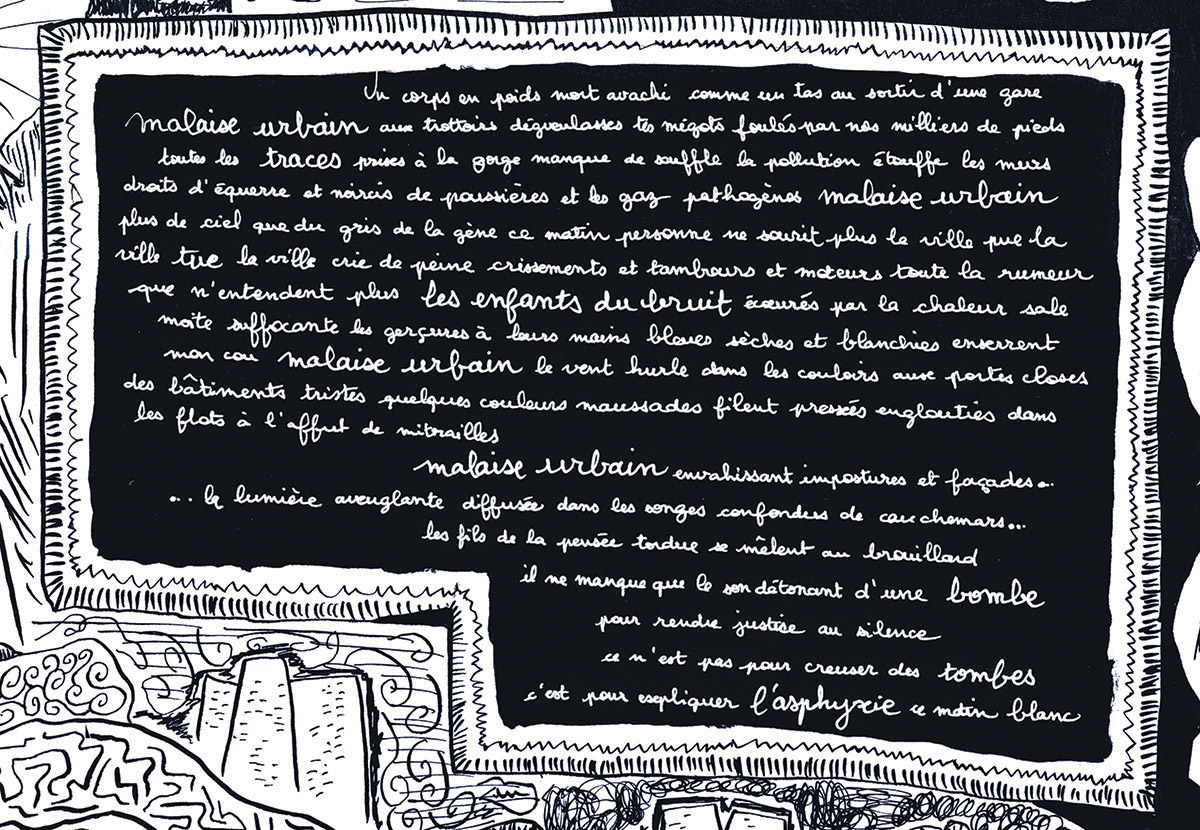 Un corps en poids mort avachi comme un tas au sortir d'une gare
malaise urbain aux trottoirs dégoulasses tes mégots foulés par nos milliers de pieds
toutes les traces prises à la gorge manque de souffle la pollution étouffe les murs
droits d'équerre et noircis de poussières et les gaz pathogènes malaise urbain
plus de ciel que du gris de la gène ce matin personne ne sourit plus la ville pue la
ville tue la ville crie de peine crissements et tambours et moteurs toute la rumeur
que n'entendent plus les enfants du bruit écœurés par la chaleur sale
moite suffocante les gerçures à leurs mains bleues sèches et blanchies enserrent
mon cou malaise urbain le vent hurle dans les couloirs aux portes closes
des bâtiments tristes quelques couleurs maussades filent pressées englouties dans
les flots à l'affut de mitrailles
malaise urbain envahissant impostures et façades...
... la lumière aveuglante diffusée dans les songes confondus de cauchemars...
les fils de la pensée tordue se mêlent au brouillard
il ne manque que le son détonant d'une bombe
pour rendre justice au silence
ce n'est pas pour creuser des tombes
c'est pour expliquer l'asphyxie ce matin blanc